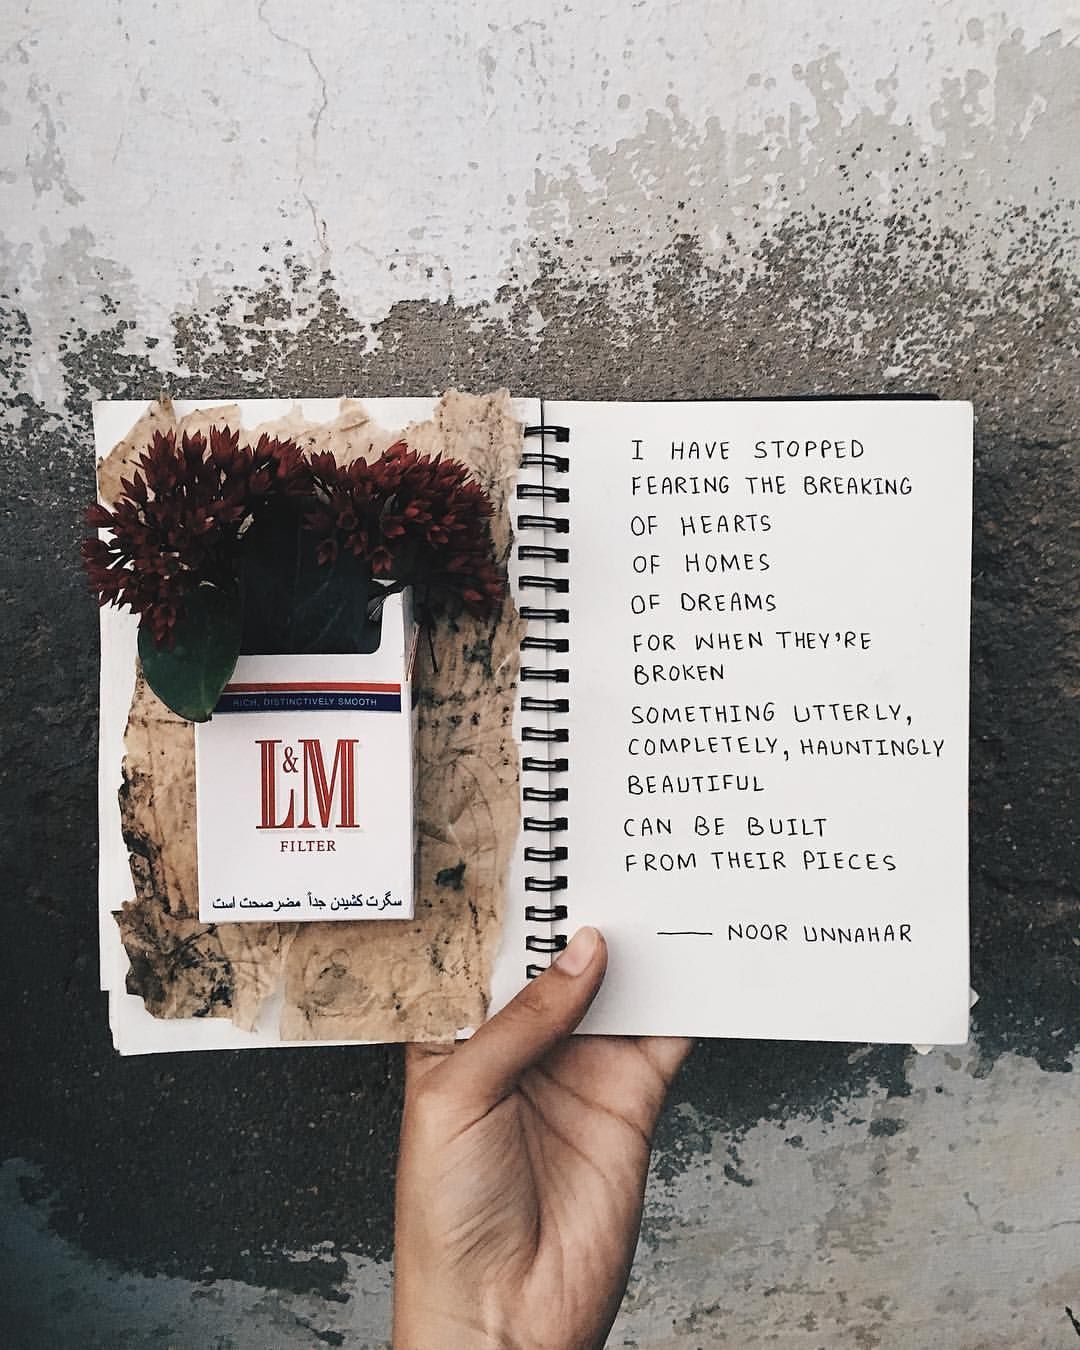 RICH, DISTINCTIVELY SMOOTH
L&M
FILTER
سگرت کشیدن جداً مضر صحت است
I HAVE STOPPED
FEARING THE BREAKING
OF HEARTS
OF HOMES
OF DREAMS
FOR WHEN THEY'RE
BROKEN
SOMETHING UTTERLY,
COMPLETELY, HAUNTINGLY
BEAUTIFUL
CAN BE BUILT
FROM THEIR PIECES
—— NOOR UNNAHAR